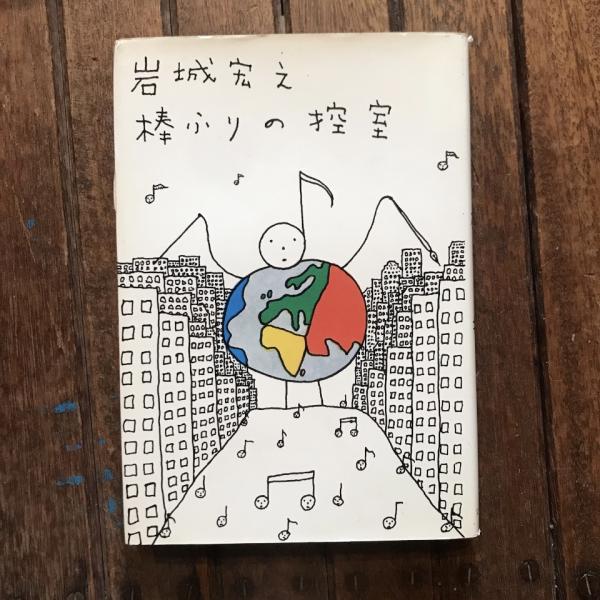 岩城宏之
棒ふりの控室